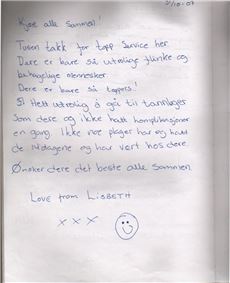 5/10-07
Kjære alle sammen!
Tusen takk for topp service her.
Dere er bare så utrolig flinke og
behagelige mennesker
Dere er bare så toppers!
Helt utrolig å gå til tannleger
som dere og ikke hatt komplikasjoner
en gang. Ikke noe plager har eg hatt
de dagene eg har vert hos dere
Ønsker dere det beste alle sammen
LOVE from LISBETH
x x x